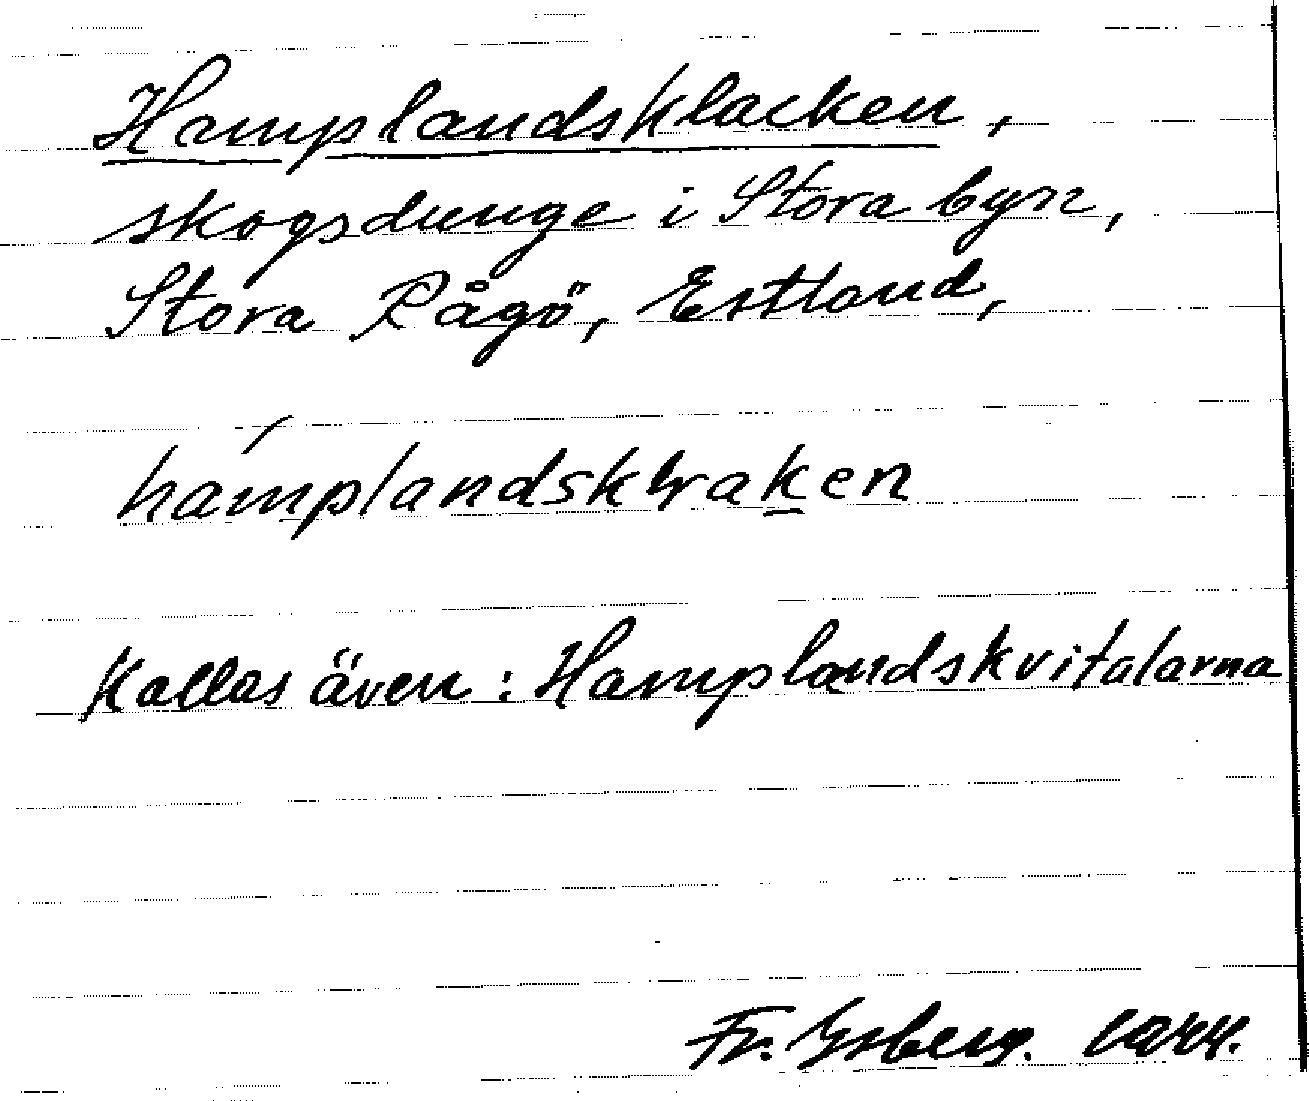 Hamplandsklacken,
skogsdunge i Stora byn,
Stora Rågö, Estland,
hámplandskɽaken
Kallas även: Hamplandskvitalarna
Fr. Ysberg. 1944.